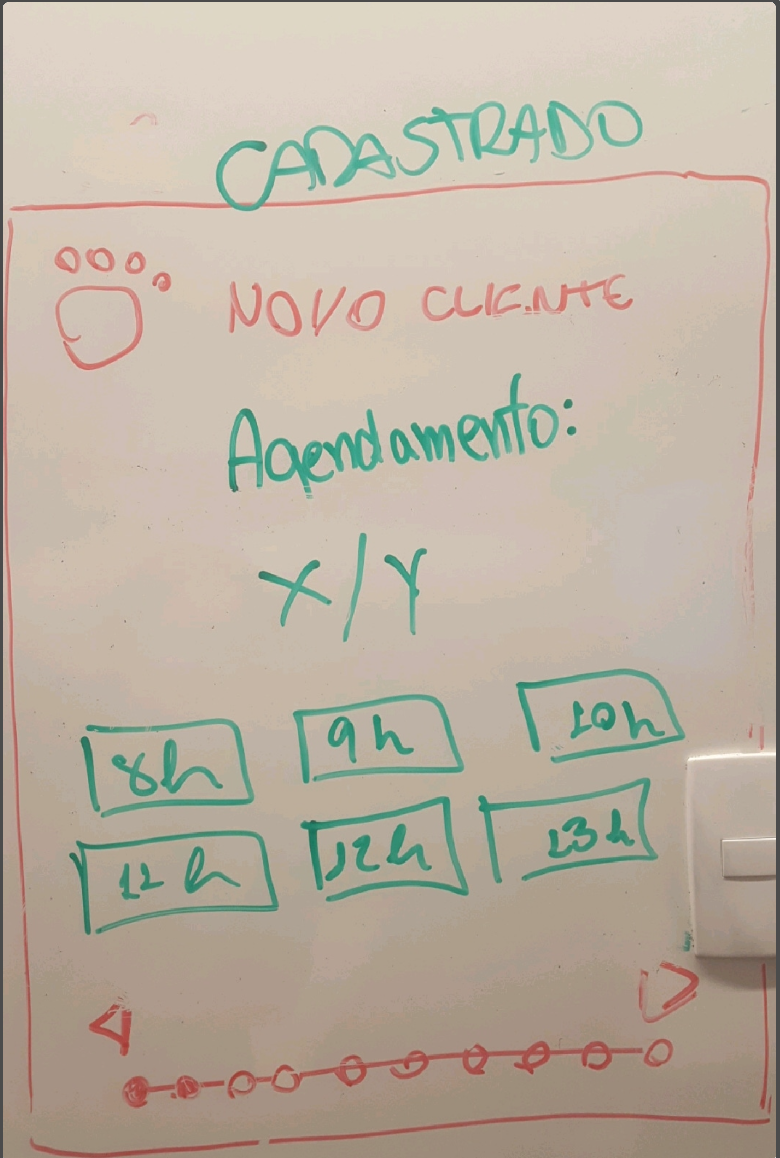 CADASTRADO
NOVO CLIENTE
Agendamento:
X/Y
8h 9h 10h
11h 12h 13h